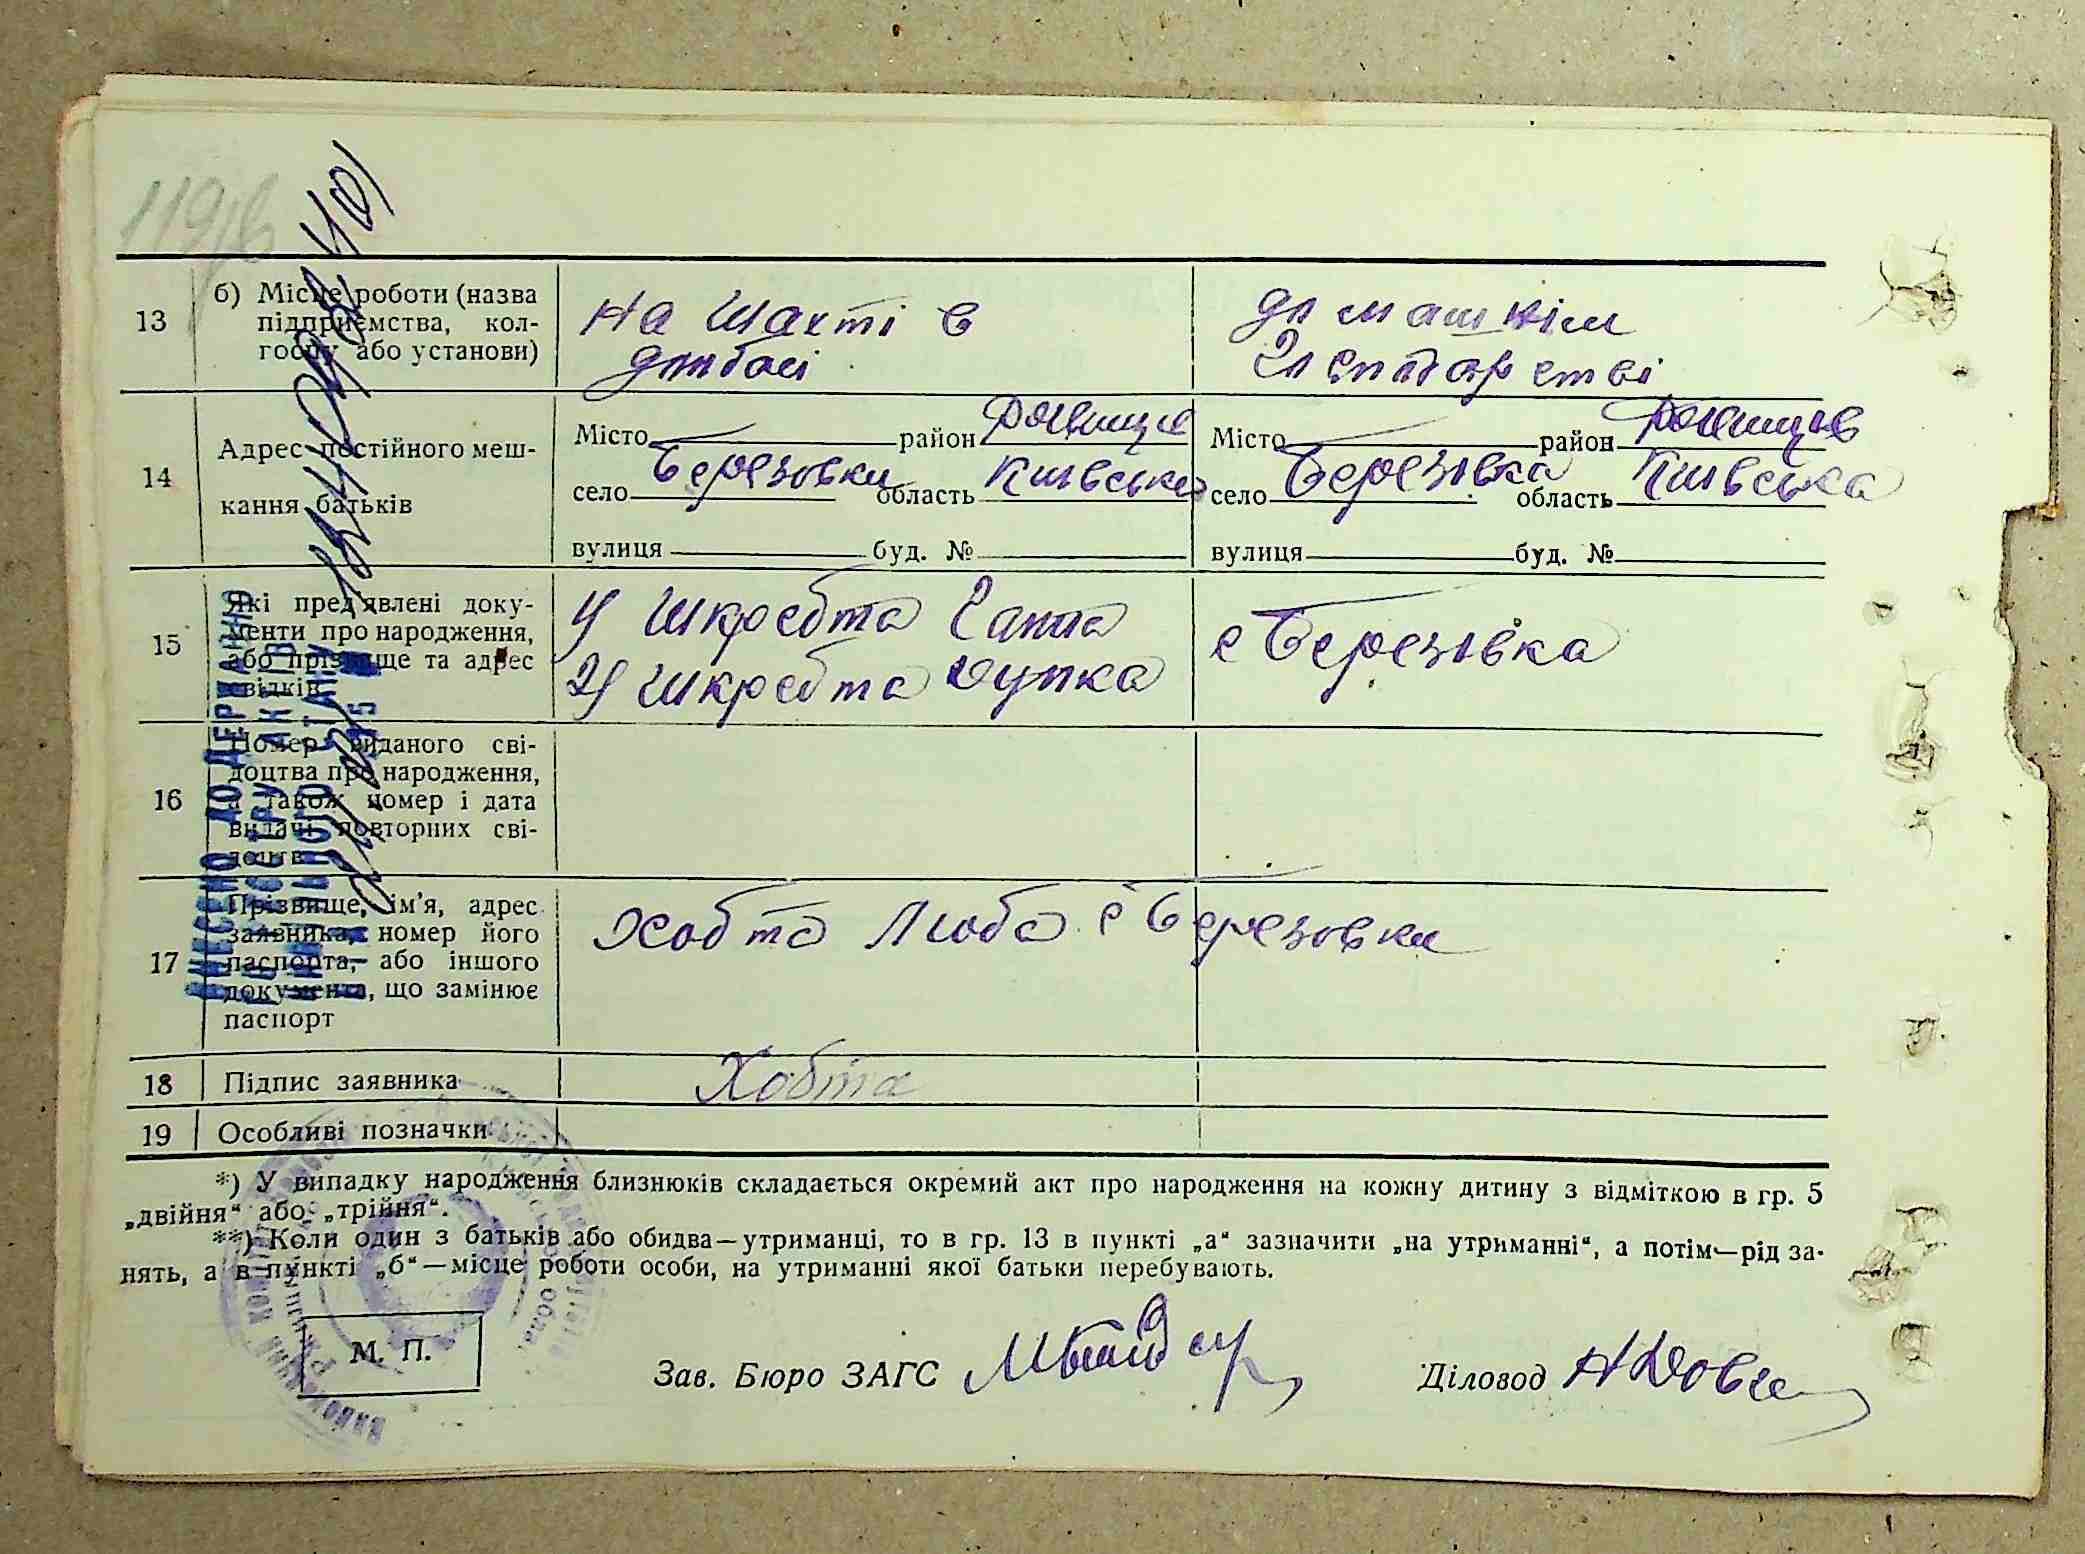 119/в
13
б) Місце роботи (назва
підприємства, кол-
госпу або установи)
на шахті в
донбасі
домашнім
господарстві
14
Адрес постійного меш-
кання батьків
Місто район
село Березовка область Київська
вулиця буд. №
Місто район
село Березовка область Київська
вулиця буд. №
15
Які пред'явлені доку-
менти про народження,
або прізвище та адрес
свідків
1) Шкребта Ганна
2) Шкребта
с Березовка
16
Номер виданого сві-
доцтва про народження,
а також номер і дата
видачі повторних сві-
доцтв
17
Прізвище, ім'я, адрес
заявника, номер його
паспорта, або іншого
документа, що замінює
паспорт
Хобта Люба с Березовка
18 Підпис заявника
Хобта
19 Особливі позначки
*) У випадку народження близнюків складається окремий акт про народження на кожну дитину з відміткою в гр. 5
„двійня“ або „трійня“.
**) Коли один з батьків або обидва—утриманці, то в гр. 13 в пункті „а“ зазначити „на утриманні“, а потім—рід за-
нять, а в пункті „б“—місце роботи особи, на утриманні якої батьки перебувають.
М. П.
Зав. Бюро ЗАГС
Діловод
ВНЕСЕНО ДО ДЕРЖАВНОГО
РЕЄСТРУ АКТІВ
ЦИВІЛЬНОГО СТАНУ